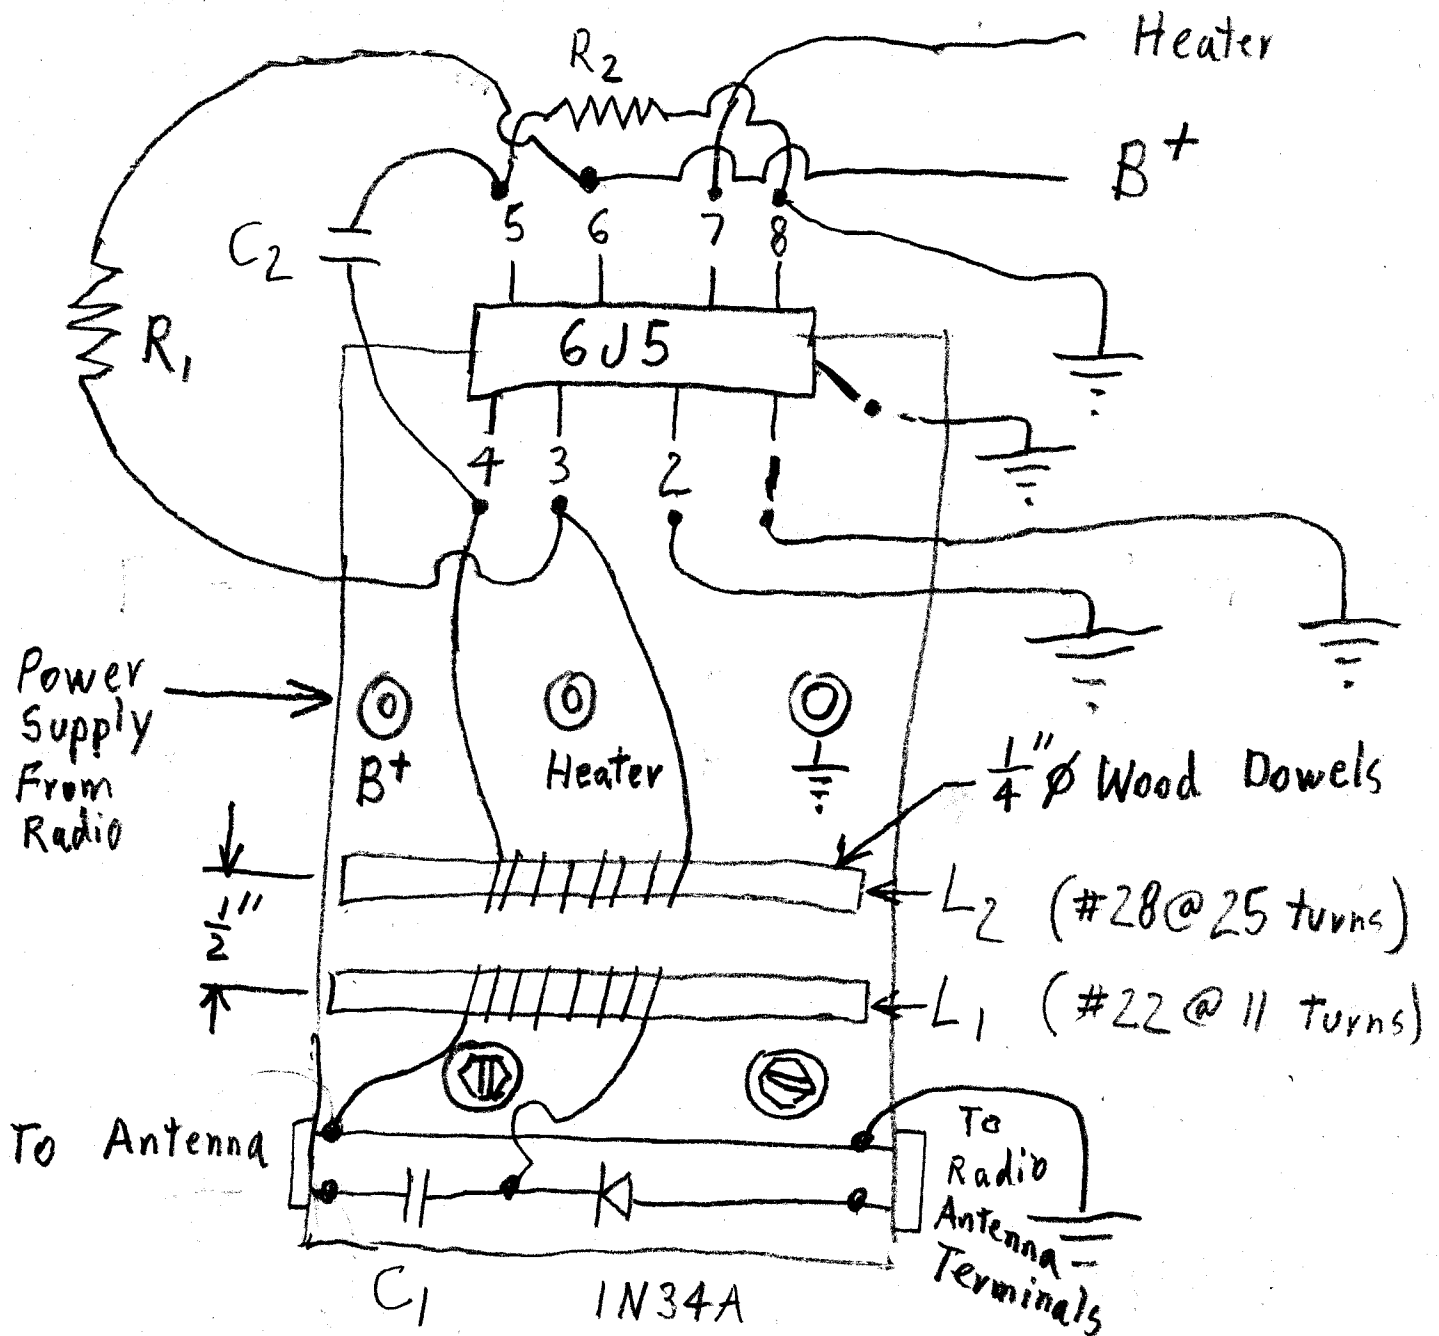 Heater
R2
B+
5 6 7 8
C2
6J5
R1
4 3 2 1
Power
Supply
From
Radio
B+
Heater
1/4" Ø Wood Dowels
1/2"
L2 (#28@25 turns)
L1 (#22@11 turns)
To Antenna
To
Radio
Antenna
Terminals
C1
1N34A